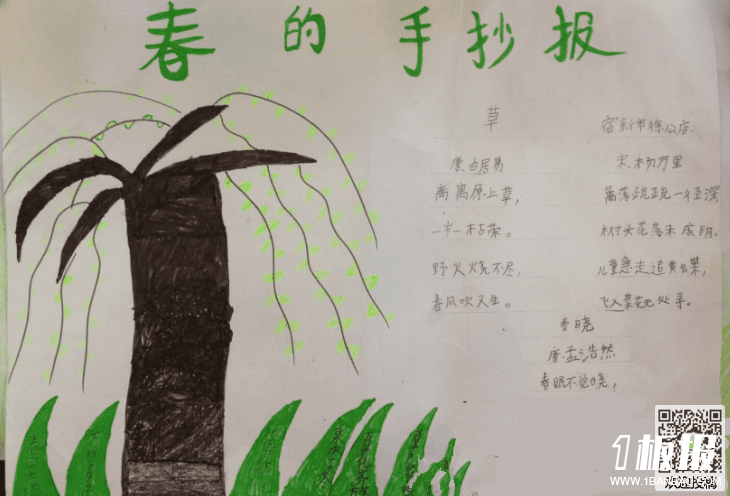 春的手抄报
草
唐.白居易
离离原上草，
一岁一枯荣。
野火烧不尽，
春风吹又生。
宿新市徐公店
宋.杨万里
篱落疏疏一径深
树头花落未成阴。
儿童急走追黄蝶，
飞入菜花无处寻。
春晓
唐.孟浩然
春眠不觉晓，
1板报
WWW.1BANBAO.COM